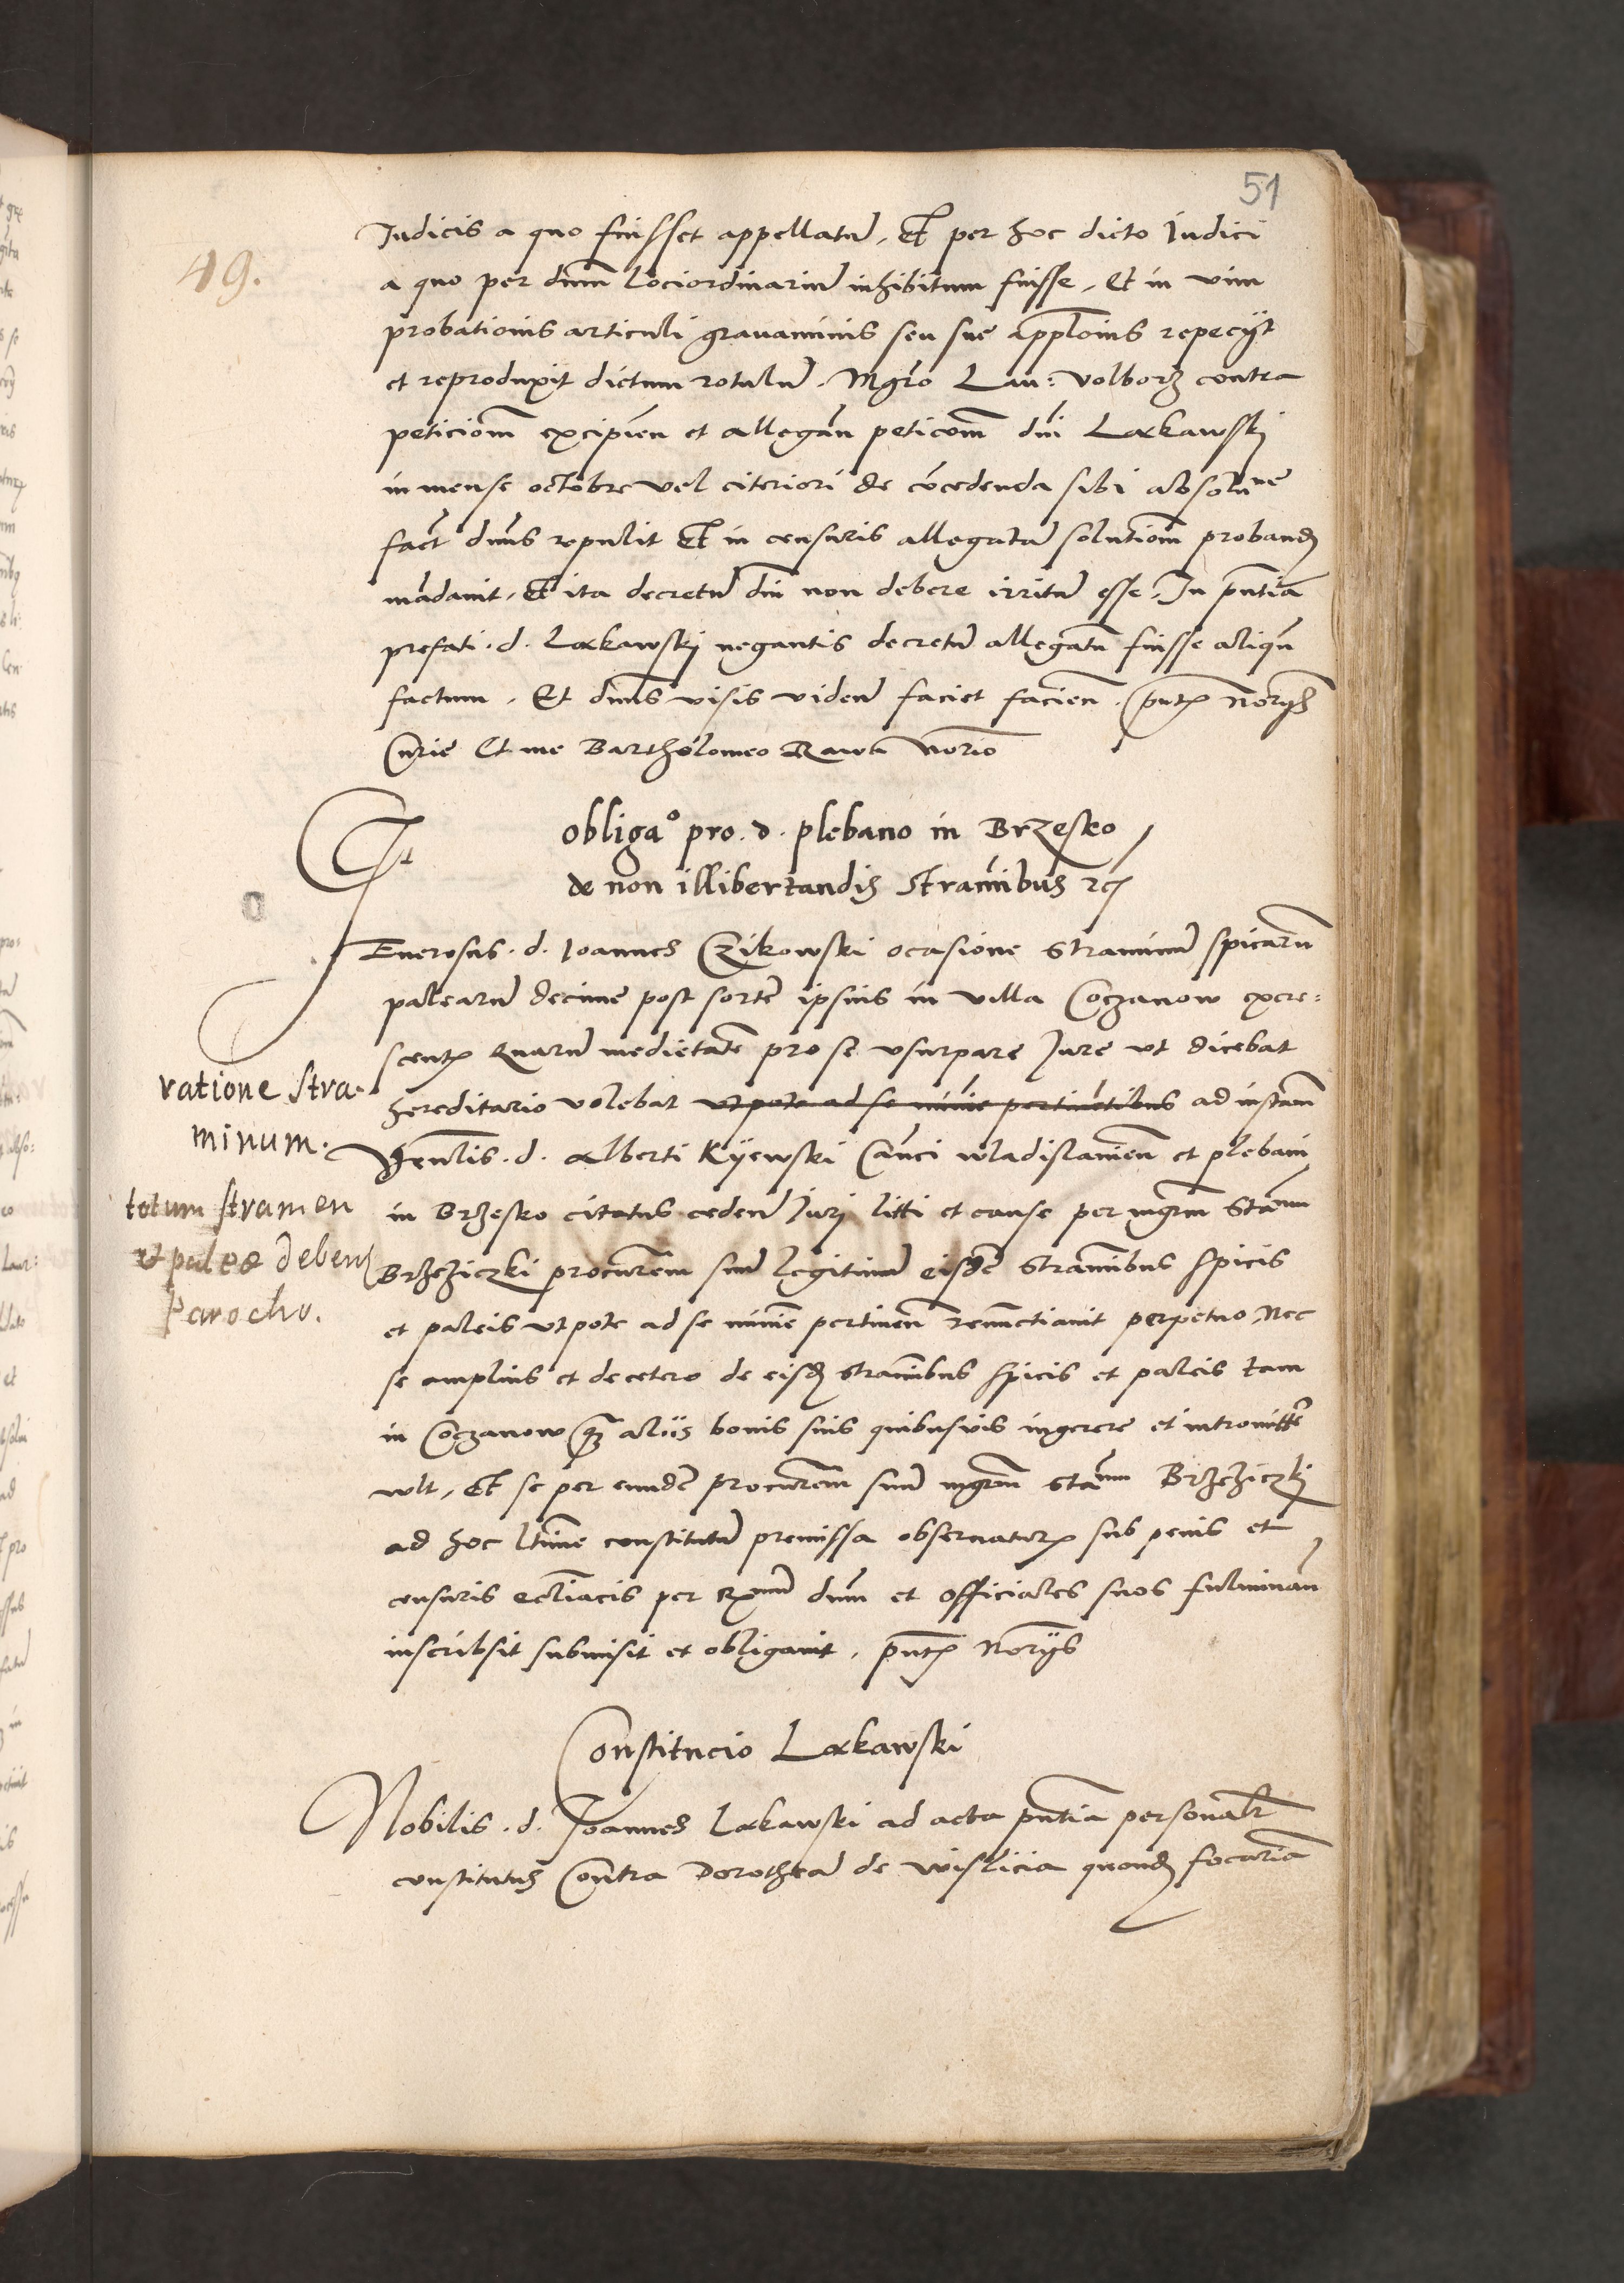 51
49.
Iudicis a quo fuisset appellatũ, Et per hoc dicto Iudici
a quo per dnm̃ lociordinariũ inhibitum fuisse, Et in vim
probationis articuli grauaminis seu sue appl̃onis repecijt
et reproduxit dictum rotulũ. Mgr̃o Lau: volborz contra
peticiom̃ excipień et allegań peticom̃ dńi Lœkawskj
in mense octobre vel citeriori de cõcedenda sibi absolune
fact̃ dnũs repulit Et in censuris allegatã solutiom̃ proband
mãdauit, Et ita decretũ dńi non debere irritũ esse, In pñtia
prefati. d. Lœkawskj negantis decretũ allegatũ fuisse aliqũ
factum, Et dnũs visis videń faciet facień. pñtꝫ Nor̃ijs
Curie Et me Bartholomeo Rawa Nor̃io
obligaº pro. d. plebano in Brzesko,
de non illibertandis straminibus rc̃
Enerosus. d. Ioannes Czikowski ocasione straminũ spicarũ
palearũ decime post sortẽ ipsius in villa Coczanow excre:
scentꝫ Quarũ medietatẽ pro se vsurpare Iure vt dicebat
hereditario volebat vtpote ad se minie pertinẽtibus ad instam̃
Venl̃is. d. Alberti Kyewski Cañci wladislauień et plebani
in Brzesko citatus cedeń Iurj litti et cause per mgrm̃ Stãnu
Brzeziczki procur̃em suũ legitimũ eisdẽ straminibus spicis
et paleis vtpote ad se minie pertineń renũctiauit perpetuo, Nec
se amplius et de cetero de eisd straminibus spicis et paleis tam
in Coczanow qȝ aliis bonis suis quibusuis ingerere et intromitte
wlt, Et se per eundẽ procur̃em suũ mgrm̃ stãnu Brzeziczkj
ad hoc ltim̃e constitutũ premissa obseruaturꝫ sub penis et
censuris ecl̃iacis per Rmũ dnm̃ et officiales suos fulminań
inscribsit submisit et obligauit, pñtꝫ Nor̃ijs
ratione stra-
minum.
totum stramen
et paleæ debent
Parocho.
Constitucio Lœkawski
Nobilis. d. Ioannes Lœkawski ad acta pñtia personalr̃
constitutus Contra Dorotheã de wislicia quond focariã